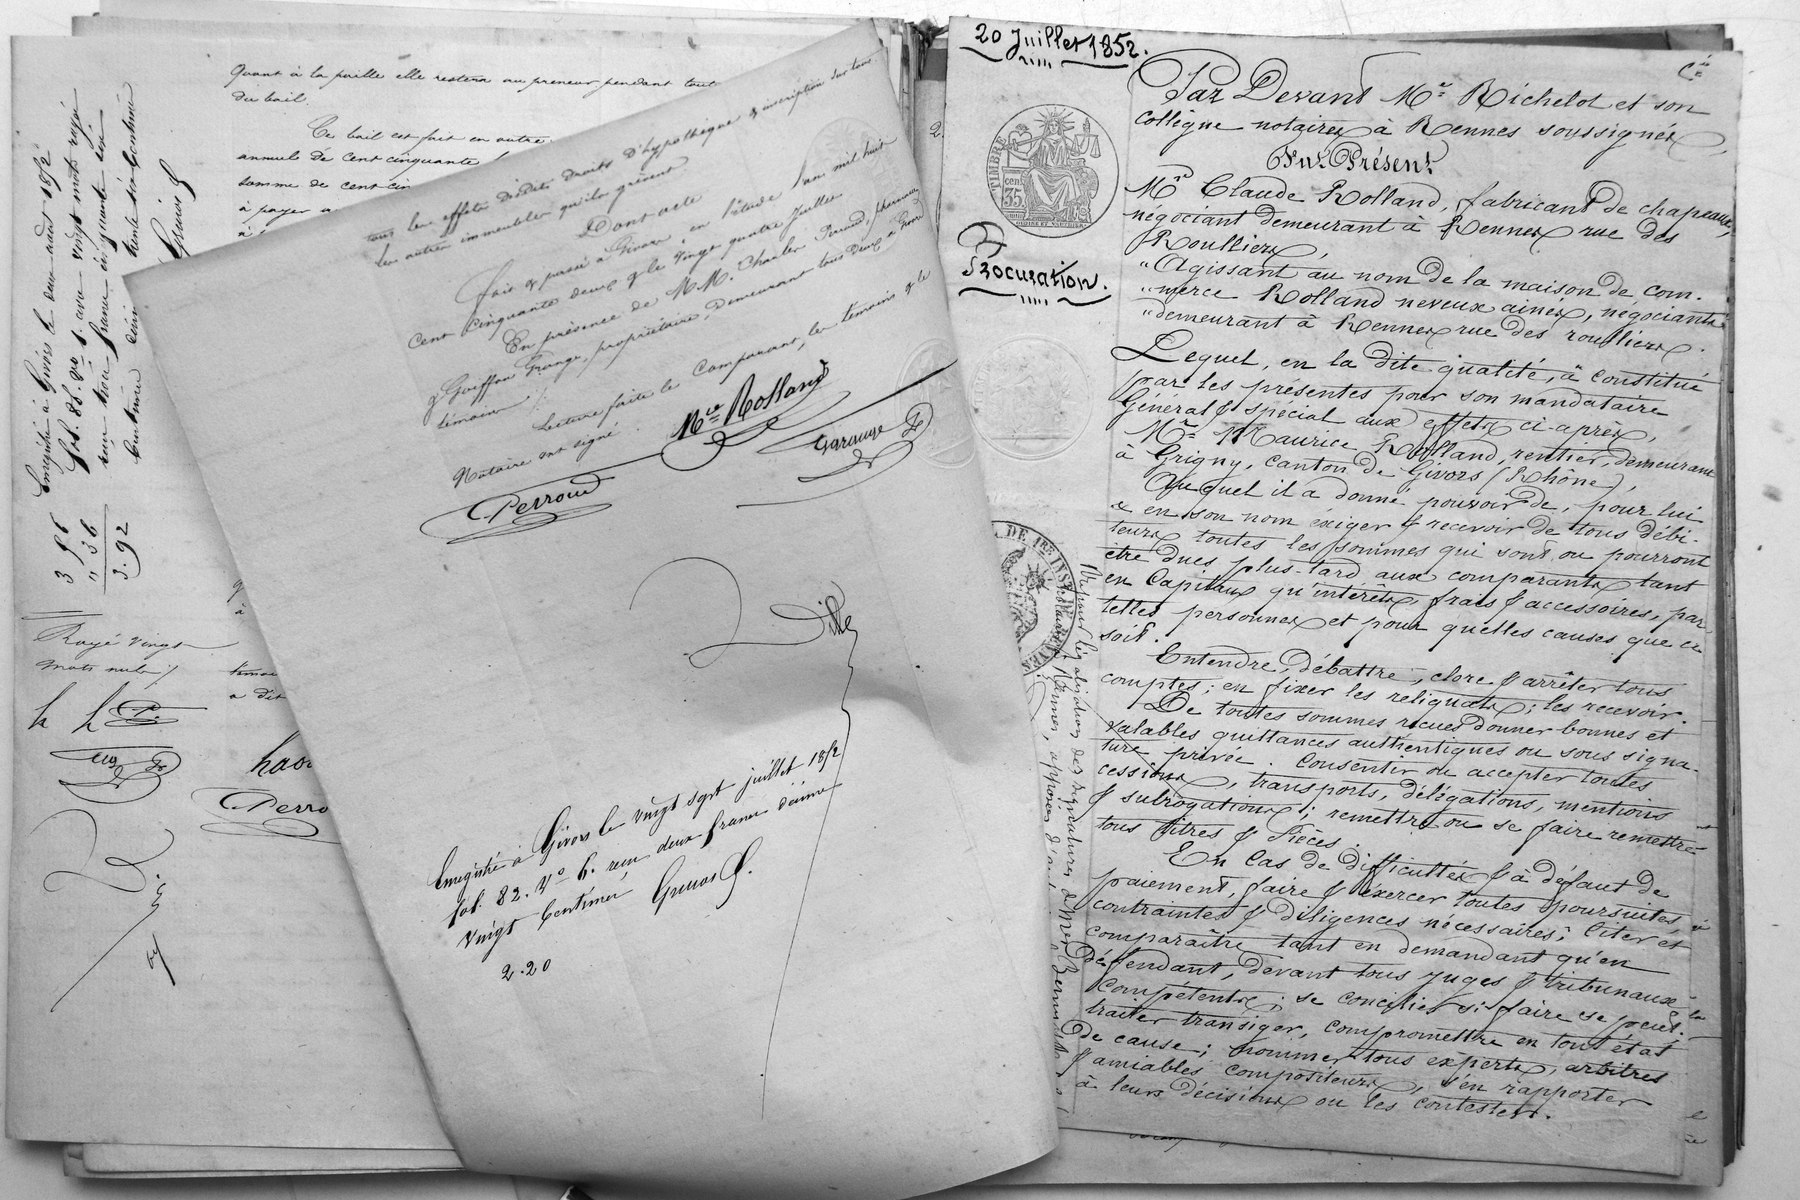 Quant à la paille elle restera au preneur pendant tout
du bail.
Ce bail est fait en outre
annuel de cent cinquante
somme de cent cin
à payer
Enregistré à Givors le deux août 1852
fol. 85. vo
reçu trois francs cinquante cinq
centimes
3 56
" 36
3.92
Rayé vingt
mots nuls
a dit
Perro
tous les effets desdits droits d'hypothèque & inscription sur tous
les autres immeubles qu'ils grèvent.
Dont acte
Fait & passé à Givors, en l'étude l'an mil huit
cent cinquante deux & le vingt quatre Juillet
En présence de MM. Charles Perroud,
& Goiffon Grange, propriétaire, demeurant tous deux à Givors
témoins
Lecture faite le Comparant, les témoins & le
Notaire ont signé.
Mce Rolland
Perroud
Grange
Enregistré à Givors le vingt sept juillet 1852
fol. 82. Vo 6. reçu deux francs décime
vingt centimes
2.20
20 Juillet 1852.
Par Devant Me Richelot et son
collègue notaires à Rennes soussignés
Fut Présent
TIMBRE
cen. 35
Procuration.
Mr Claude Rolland, fabricant de chapeaux,
négociant demeurant à Rennes rue des
Roulliers,
"Agissant au nom de la maison de com-
"merce Rolland neveux ainés, négociants
"demeurant à Rennes rue des roulliers.
Lequel, en la dite qualité, à constitué
par les présentes pour son mandataire
Général & spécial aux effets ci-après,
Mr Maurice Rolland, rentier, demeurant
à Grigny, canton de Givors (Rhône),
Auquel il a donné pouvoir de, pour lui
& en son nom éxiger & recevoir de tous débi-
teurs toutes les sommes qui sont ou pourront
être dues plus-tard aux comparants tant
en Capitaux qu'intérêts, frais & accessoires, par
telles personnes et pour quelles causes que ce
soit.
Entendre, débattre, clore & arrêter tous
comptes; en fixer les reliquats; les recevoir.
De toutes sommes reçues donner bonnes et
valables quittances authentiques ou sous signa-
ture privée. Consentir ou accepter toutes
cessions, transports, délégations, mentions
& subrogations; remettre ou se faire remettre
tous titres & Pièces.
En cas de difficultés & à défaut de
paiement, faire & éxercer toutes poursuites,
contraintes & diligences nécessaires; Citer et
comparaître tant en demandant qu'en
défendant, devant tous juges & tribunaux
compétents; se concilier si faire se peut;
traiter transiger, compromettre en tout état
de cause; nommer tous experts, arbitres
& amiables compositeurs, s'en rapporter
à leurs décisions ou les contester.
DE 1RE INST
Vu pour légalisation des signatures